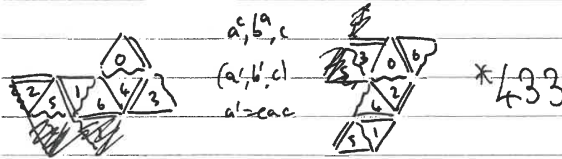 0
2 5 1 6 4 3
a^c, b^a, c
(a', b', c)
a' = cac
3 0 6
4 2
5 1
*433